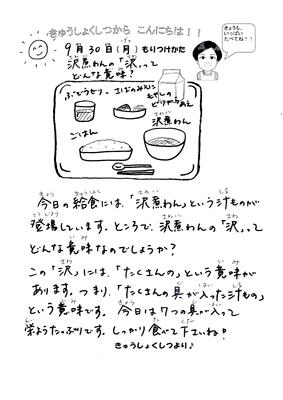 きゅうしょくしつから こんにちは！！
きょうも、
いっぱい
たべてね！！
9月30日(月) もりつけかた
沢煮わんの「沢」って
どんな意味？
ぶどうゼリー
さばのみそに
もやしの
ピリからあえ
ごはん
沢煮わん
今日の給食には、「沢煮わん」という汁ものが
登場しています。ところで、沢煮わんの「沢」って
どんな意味なのでしょうか？
この「沢」には、「たくさんの」という意味が
あります。つまり、「たくさんの具が入った汁もの」
という意味です。今日は7つの具が入って
栄ようたっぷりです。しっかり食べて下さいね！
きゅうしょくしつより♪